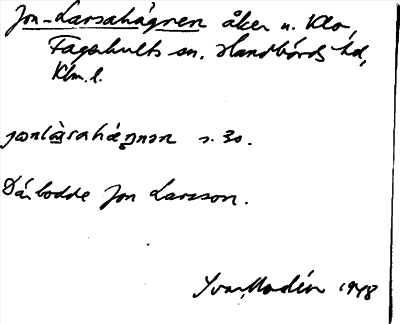 Jon-Larsahägnen åker u. Klo,
Fagerhults sn. Handbörds hd,
Klm. l.
jɷnlàrahäŋnən s. 30.
Där bodde Jon Larsson.
Ivar Modéer 1948